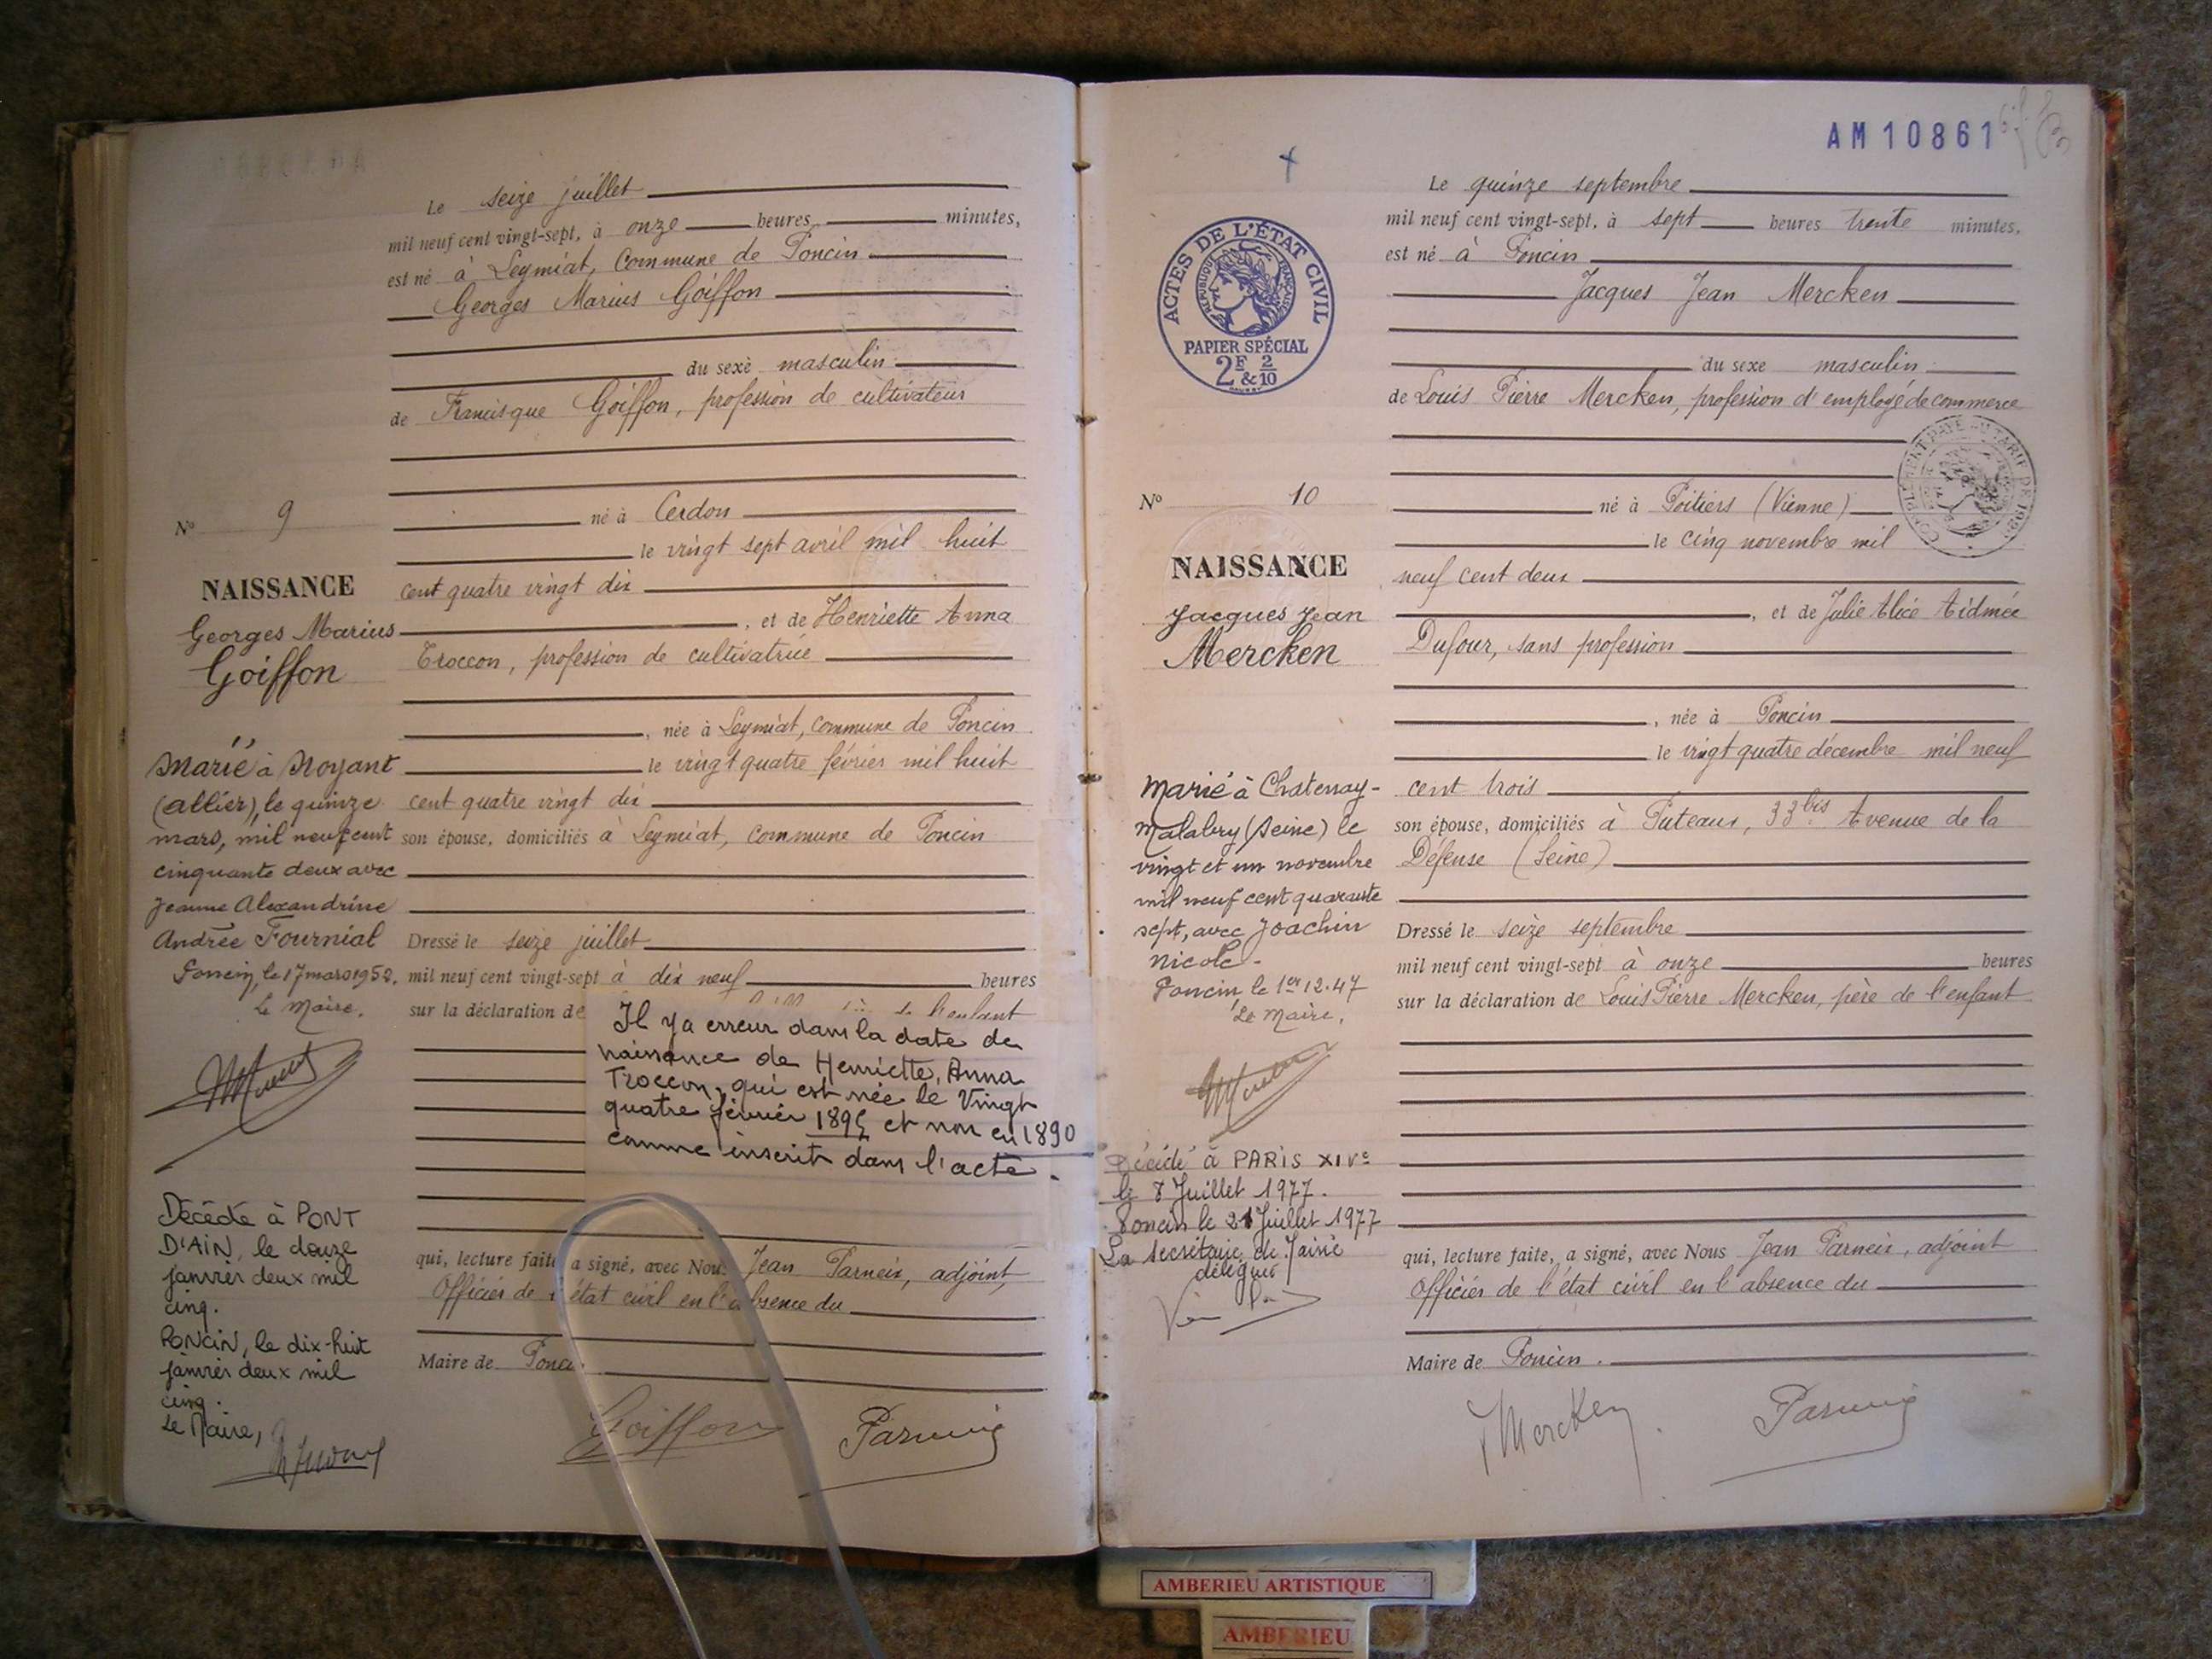 Le seize juillet
mil neuf cent vingt-sept, à onze heures minutes,
est né à Leymiat, Commune de Poncin
Georges Marius Goiffon
du sexe masculin
de Francisque Goiffon, profession de cultivateur
né à Cerdon
le vingt sept avril mil huit
cent quatre vingt dix
, et de Henriette Anna
Troccon, profession de cultivatrice
, née à Leymiat, commune de Poncin
le vingt quatre février mil huit
cent quatre vingt dix
son épouse, domiciliés à Leymiat, Commune de Poncin
Dressé le seize juillet
mil neuf cent vingt-sept à dix neuf heures
sur la déclaration de l'enfant
Il y a erreur dans la date de
naissance de Henriette, Anna
Troccon, qui est née le Vingt
quatre février 1895 et non en 1890
comme inscrit dans l'acte.
qui, lecture faite a signé, avec Nous Jean Parneix, adjoint,
Officier de l'état civil en l'absence du
Maire de Poncin
Goiffon
Nº 9
NAISSANCE
Georges Marius
Goiffon
Marié à Noyant
(Allier), le quinze
mars, mil neuf cent
cinquante deux avec
Jeanne Alexandrine
Andrée Fournial
Poncin, le 17 mars 1952.
Le Maire.
Décédé à PONT
D'AIN, le douze
janvier deux mil
cinq.
PONCIN, le dix-huit
janvier deux mil
cinq.
Le Maire,
AM 10861
Le quinze septembre
mil neuf cent vingt-sept, à sept heures trente minutes,
est né à Poncin
Jacques Jean Mercken
du sexe masculin
de Louis Pierre Mercken, profession d'employé de commerce
né à Poitiers (Vienne)
le cinq novembre mil
neuf cent deux
, et de Julie Alice Aidmée
Dufour, sans profession
, née à Poncin
le vingt quatre décembre mil neuf
cent trois
son épouse, domiciliés à Puteaux, 33 bis Avenue de la
Défense (Seine)
Dressé le seize septembre
mil neuf cent vingt-sept à onze heures
sur la déclaration de Louis Pierre Mercken, père de l'enfant
qui, lecture faite, a signé, avec Nous Jean Parneix, adjoint
Officier de l'état civil en l'absence du
Maire de Poncin.
Mercken
ACTES DE L'ÉTAT CIVIL
RÉPUBLIQUE FRANÇAISE
PAPIER SPÉCIAL
2F & 2/10
COMPLÉMENT PAYÉ AU TARIF DE
Nº 10
NAISSANCE
Jacques Jean
Mercken
Marié à Chatenay-
Malabry (Seine) le
vingt et un novembre
mil neuf cent quarante
sept, avec Joachin
Nicole.
Poncin le 1er 12.47
Le Maire,
Décédé à PARIS XIVe
le 8 Juillet 1977.
Poncin le 21 Juillet 1977
La Secrétaire de Mairie
délégué
AMBERIEU ARTISTIQUE
AMBERIEU